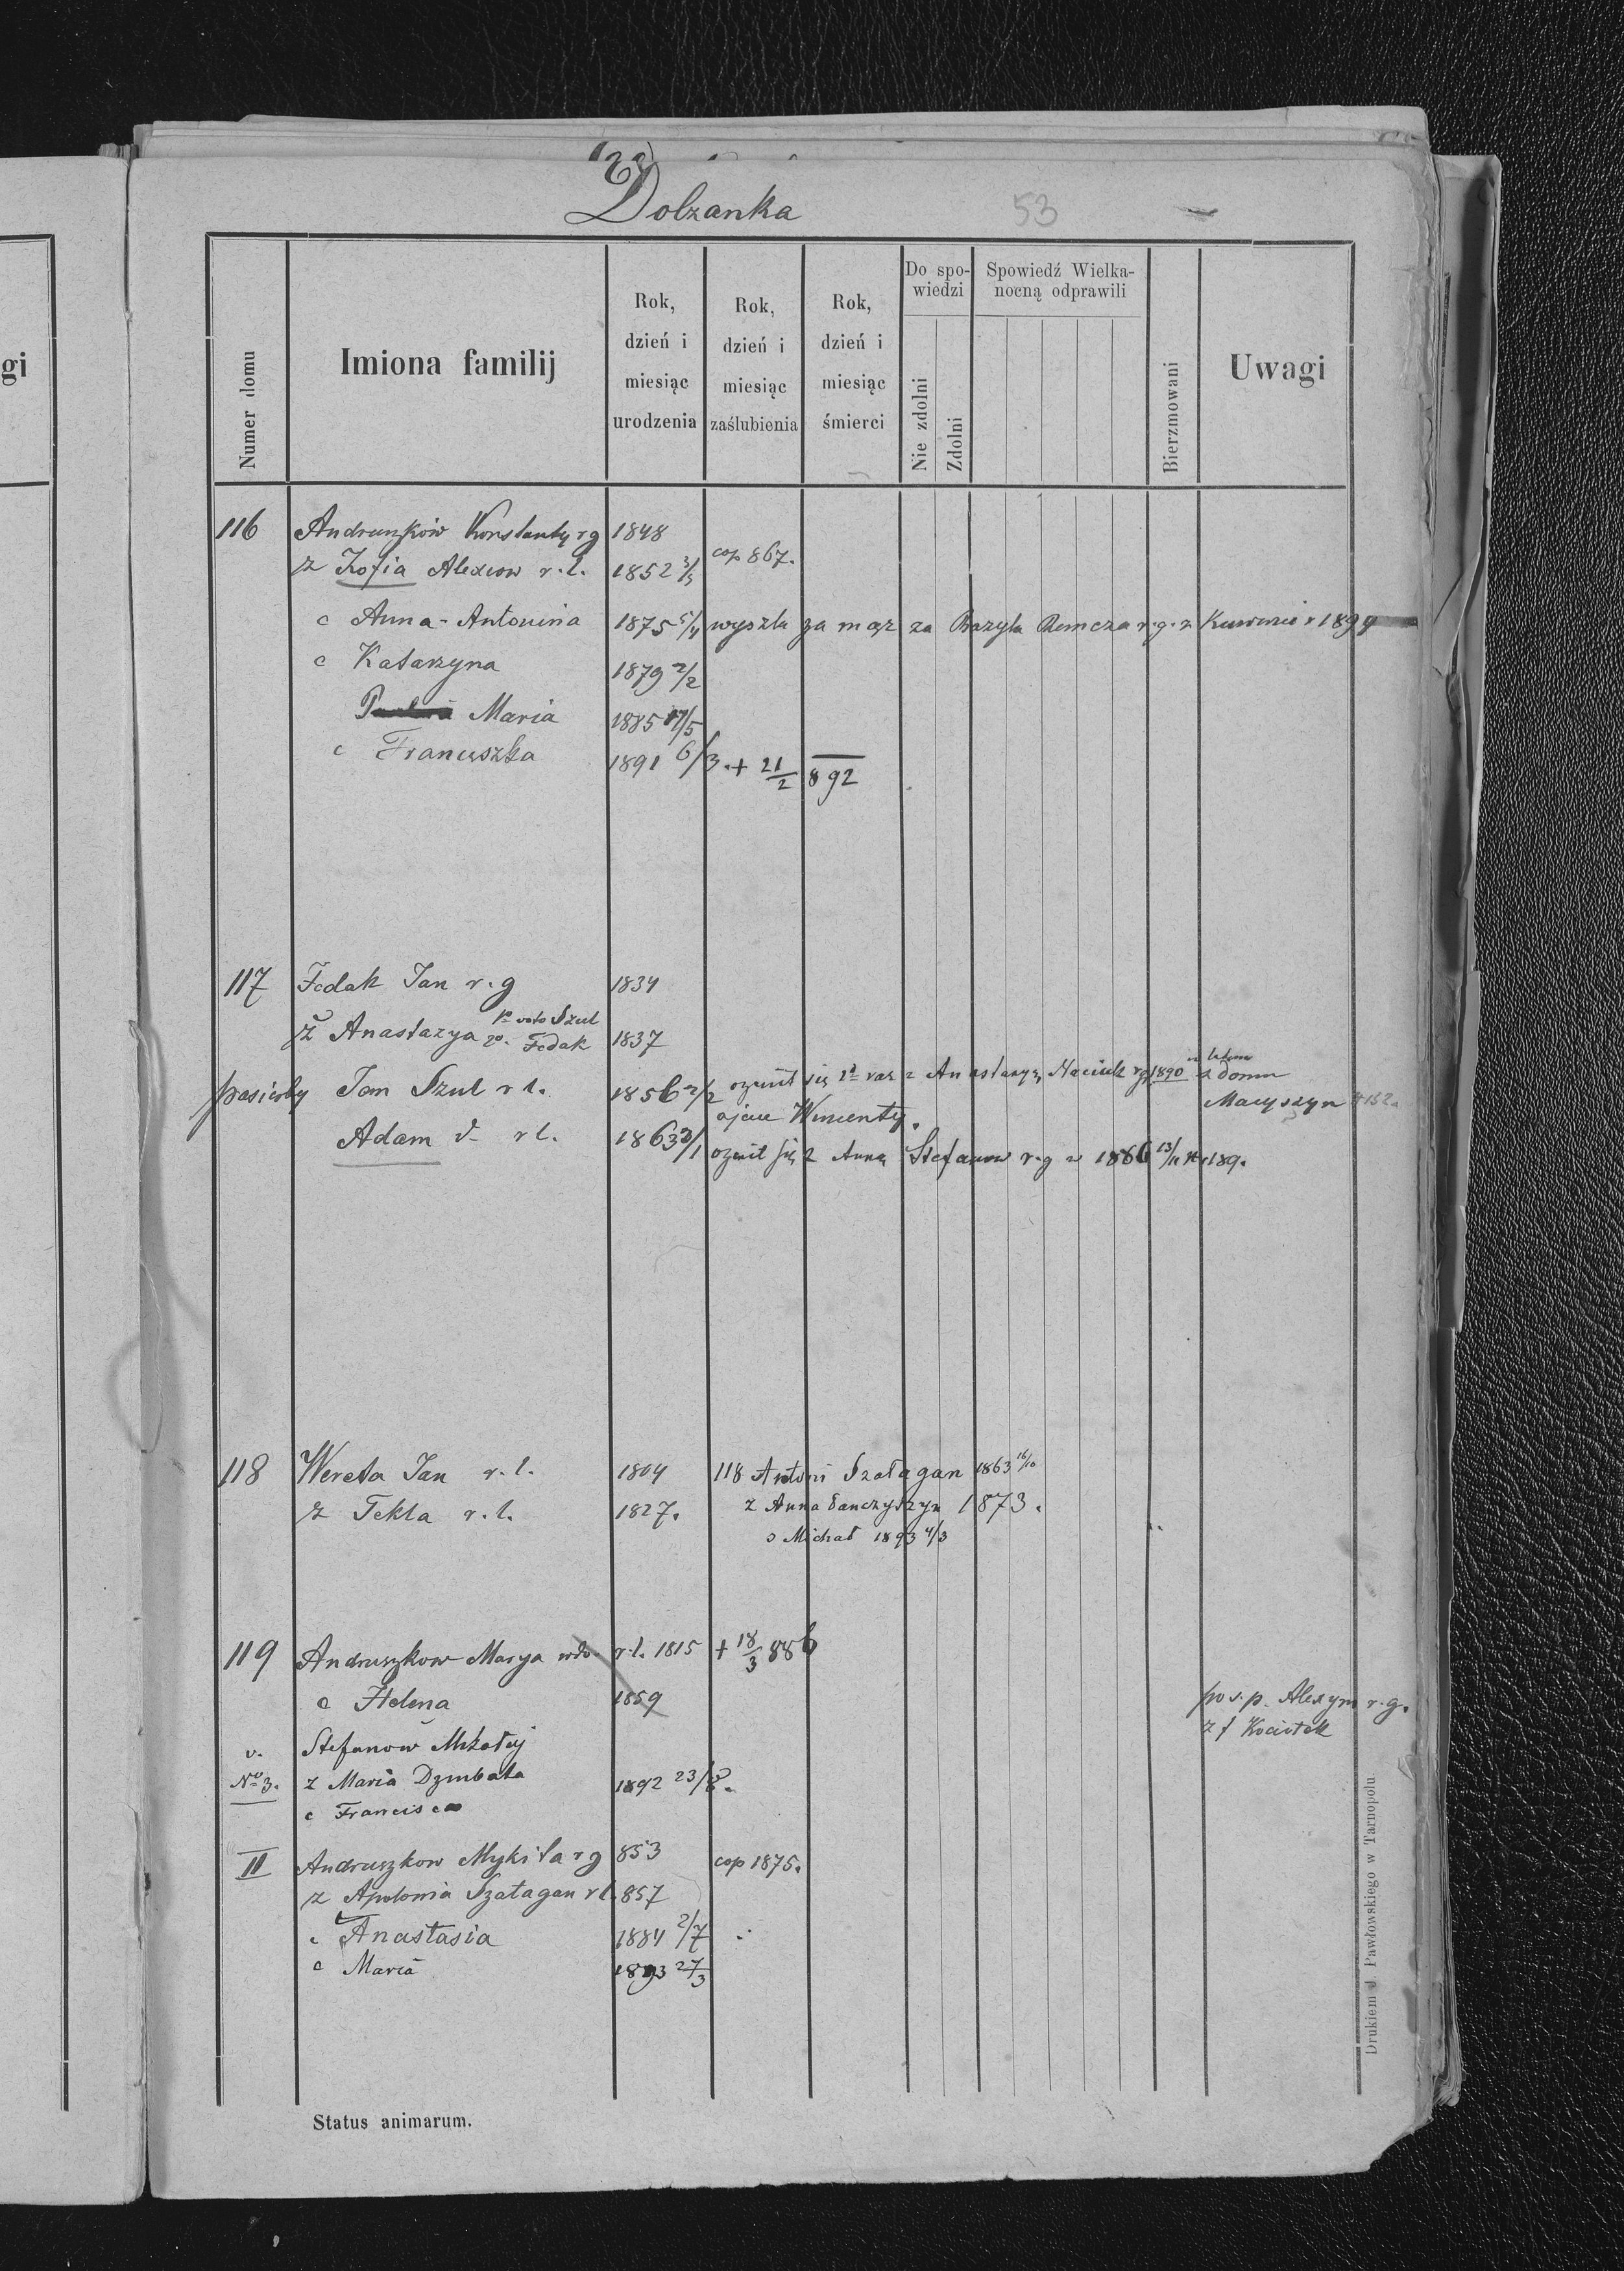 Dolzanka
53
gi
Numer domu
Imiona familij
Rok, dzień i miesiąc urodzenia
Rok, dzień i miesiąc zaślubienia
Rok, dzień i miesiąc śmierci
Do spowiedzi
Nie zdolni
Zdolni
Spowiedź Wielkanocną odprawili
Bierzmowani
Uwagi
116 Andruszków Konstanty rg 1848
ż Zofia Alexiow r.l. 1852 3/3 cop 867.
c Anna-Antonina 1875 5/4 wyszła za mąż za Bazyla r.g. z 1894
c Katarzyna 1879 2/2
Maria 1885 17/5
c Franciszka 1891 6/3 + 21/2 892
117 Fedak Jan r.g 1834
ż Anastazya 1o voto Szul 2o. Fedak 1837
pasierby Jan Szul r l. 1856 2/2 ożenił się 2d raz z Anastazyą rg 1890 z domu
ojciec Wincenty. Macyszyn # 152.
Adam d- r l. 1863 3/1 ożenił się z Anną Stefanow r.g w 1886 13/11 189.
118 Wereta Jan r.l. 1804 118 Antoni Szałagan 1863 16/10
ż Tekla r.l. 1827. ż Anna Danczyszyn 1873.
s Michał 1893 4/3
119 Andruszkow Marya wdo. r.l. 1815 + 18/3 886
c Helena 1859 po s.p. Alexym r.g.
z f Kociołek
v. Stefanow Mikołaj
No 3. ż Maria Dzinbata 1892 23/8.
c Francisca
II Andruszkow Mykita rg 853 cop 1875.
ż Apolonia Szałagan rl. 857
c Anastasia 1884 2/7
c Maria 1893 27/3
Status animarum.
Drukiem J. Pawłowskiego w Tarnopolu.